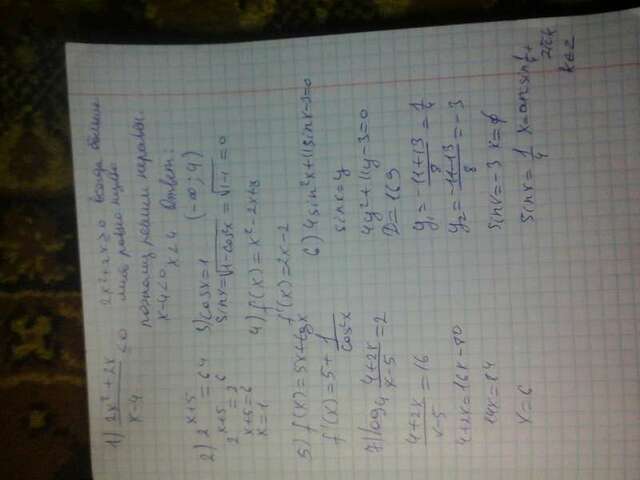 1) (2x²+2x)/(x-4) < 0   2x²+2x ≥ 0 всегда больше
либо равно нулю
поэтому решим неравен.
x-4<0
x<4   Ответ: (-∞; 4)
2) 2^(x+5) = 64
2^(x+5) = 2^6
x+5=6
x=1
3) cosx=1
sinx=√(1-cos²x) = √(1-1) = 0
4) f(x)=x²-2x+3
f'(x)=2x-2
5) f(x)=5x+tgx
f'(x)=5+1/cos²x
6) 4sin²x+11sinx-3=0
sinx=y
4y²+11y-3=0
D=169
y₁=(-11+13)/8=1/4
y₂=(-11+13)/8=-3
sinx=-3 x=∅
sinx=1/4 x=arcsin 1/4+
2πk
k∈Z
7) log₄ (4+2x)/(x-5) = 2
(4+2x)/(x-5) = 16
4+2x=16x-80
14x=84
x=6